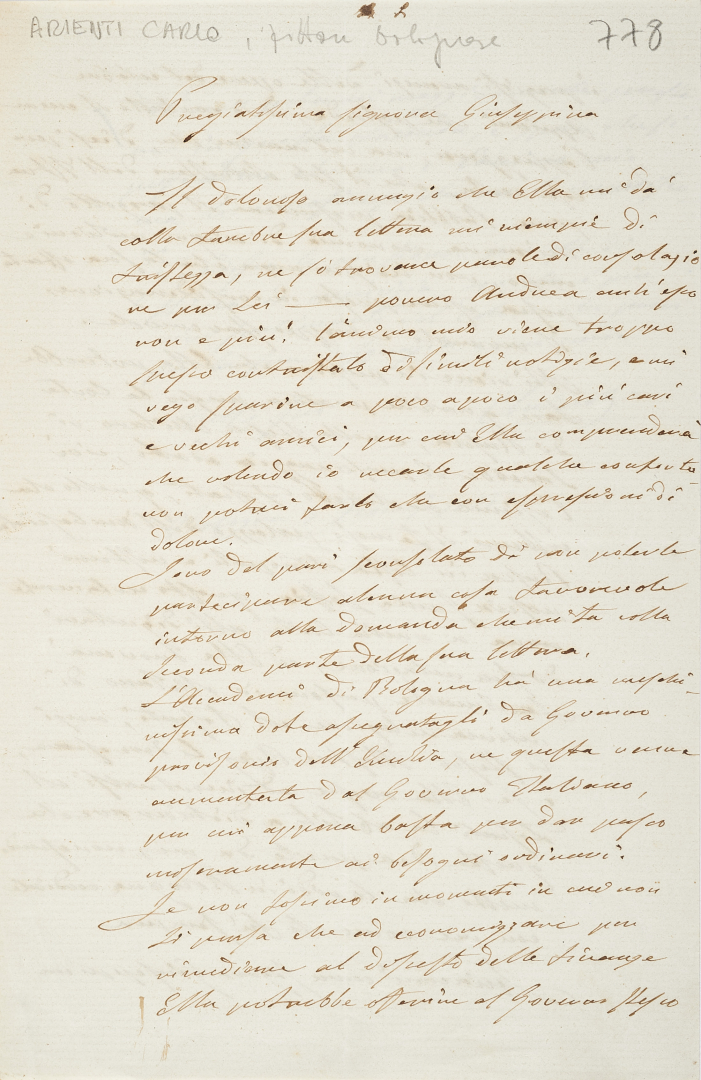 ARIENTI CARLO, pittore bolognese
778
Pregiatissima signora Giuseppina
Il doloroso annuzio che Ella mi dà
colla funebre sua lettera mi riempie di
tristezza, ne sò trovare parole di consolazio
ne per Lei — povero Andrea anch'esso
non e più! l'animo mio viene troppo
spesso contristato da simili notizie, e mi
vego sparire a poco a poco i più cari
e vechi amici, per cui Ella comprenderà
che volendo io recarle qualche conforto
non potrei farlo che con espressioni di
dolore.
Sono del pari sconsolato di non poterle
partecipare alcuna cosa favorevole
intorno alla domanda che mi fa colla
seconda parte della sua lettera.
L'Accademi di Bologna hà una meschi-
nissima dote assegnatagli da Governo
provisorio dell'Emilia, ne questa venne
aumentata dal Governo Italiano,
per cui appena basta per dar passo
miseramente ai besogni ordinari.
Se non fossimo in momenti in cui non
si pensa che ad economizzare per
rimediare al disesto delle finanze
Ella potrebbe offerire al Governo stesso